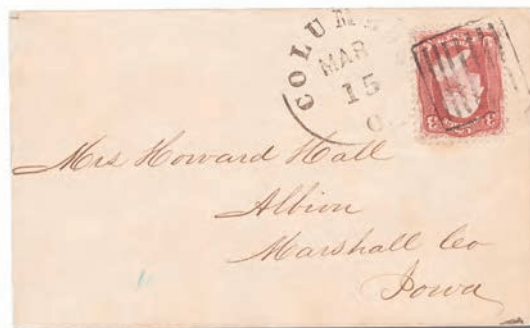 COLUM
MAR
15
O
3 3
Mrs Howard Hall
Albion
Marshall Co
Iowa